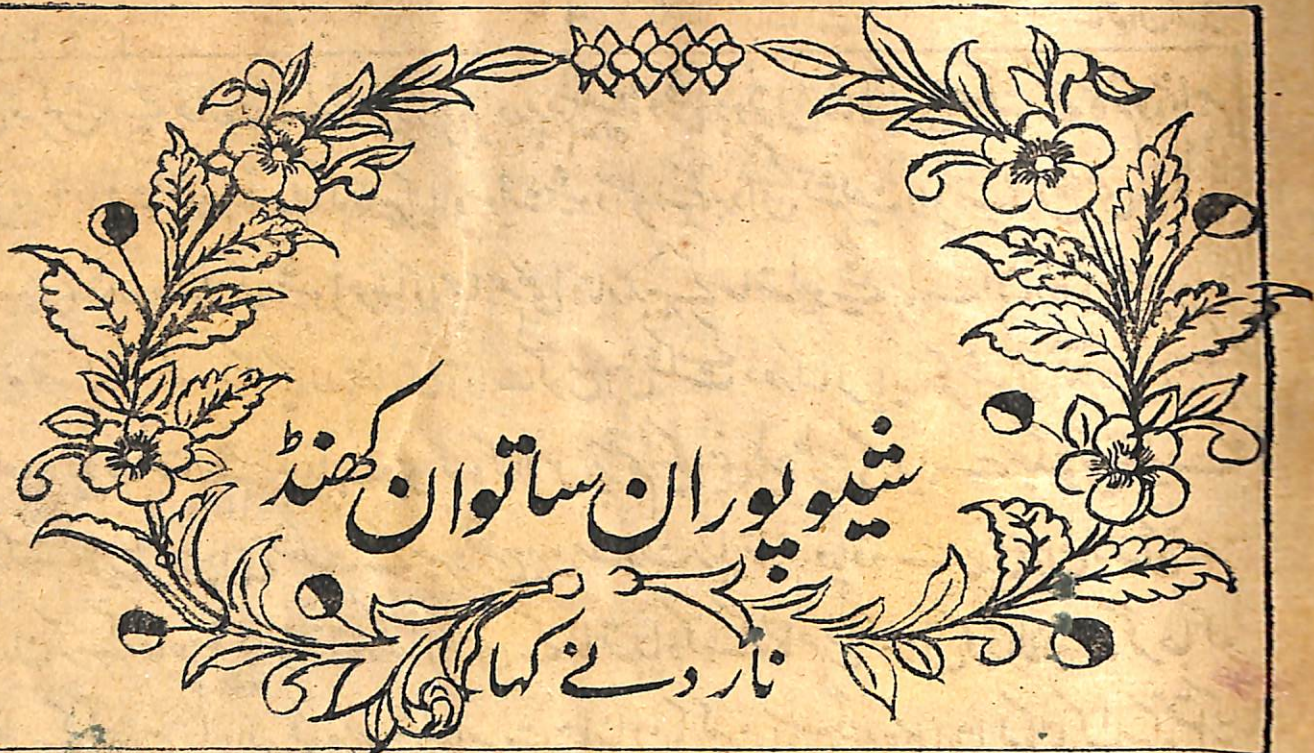 شیو پوران ساتوان کھنڈ
نارد نے کہا